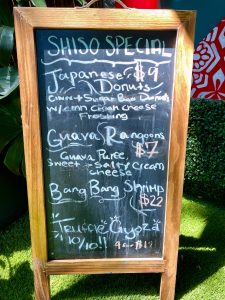 SHISO SPECIAL
Japanese $9
Donuts
Cinn + Sugar Bao Donuts
w/ Cream Cheese
Frosting
Guava Rangoons
Guava Puree, $7
Sweet + Salty Cream
Cheese
Bang Bang Shrimp
$22
Truffle Gyoza
10/10!!